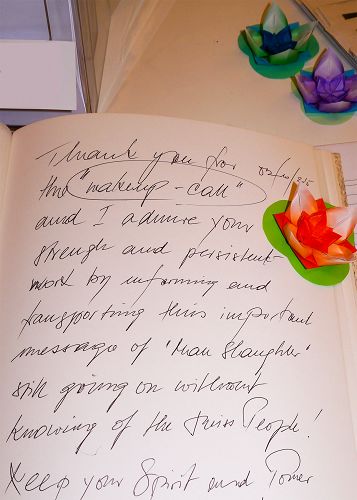 Thank you for 03/10/225
this "wakeup-call"
and I admire your
strengh and persistent
work by informing and
transporting this important
message of 'Man Slaughter'
still going on without
knowing of the Swiss People!
Keep your Spirit and Power